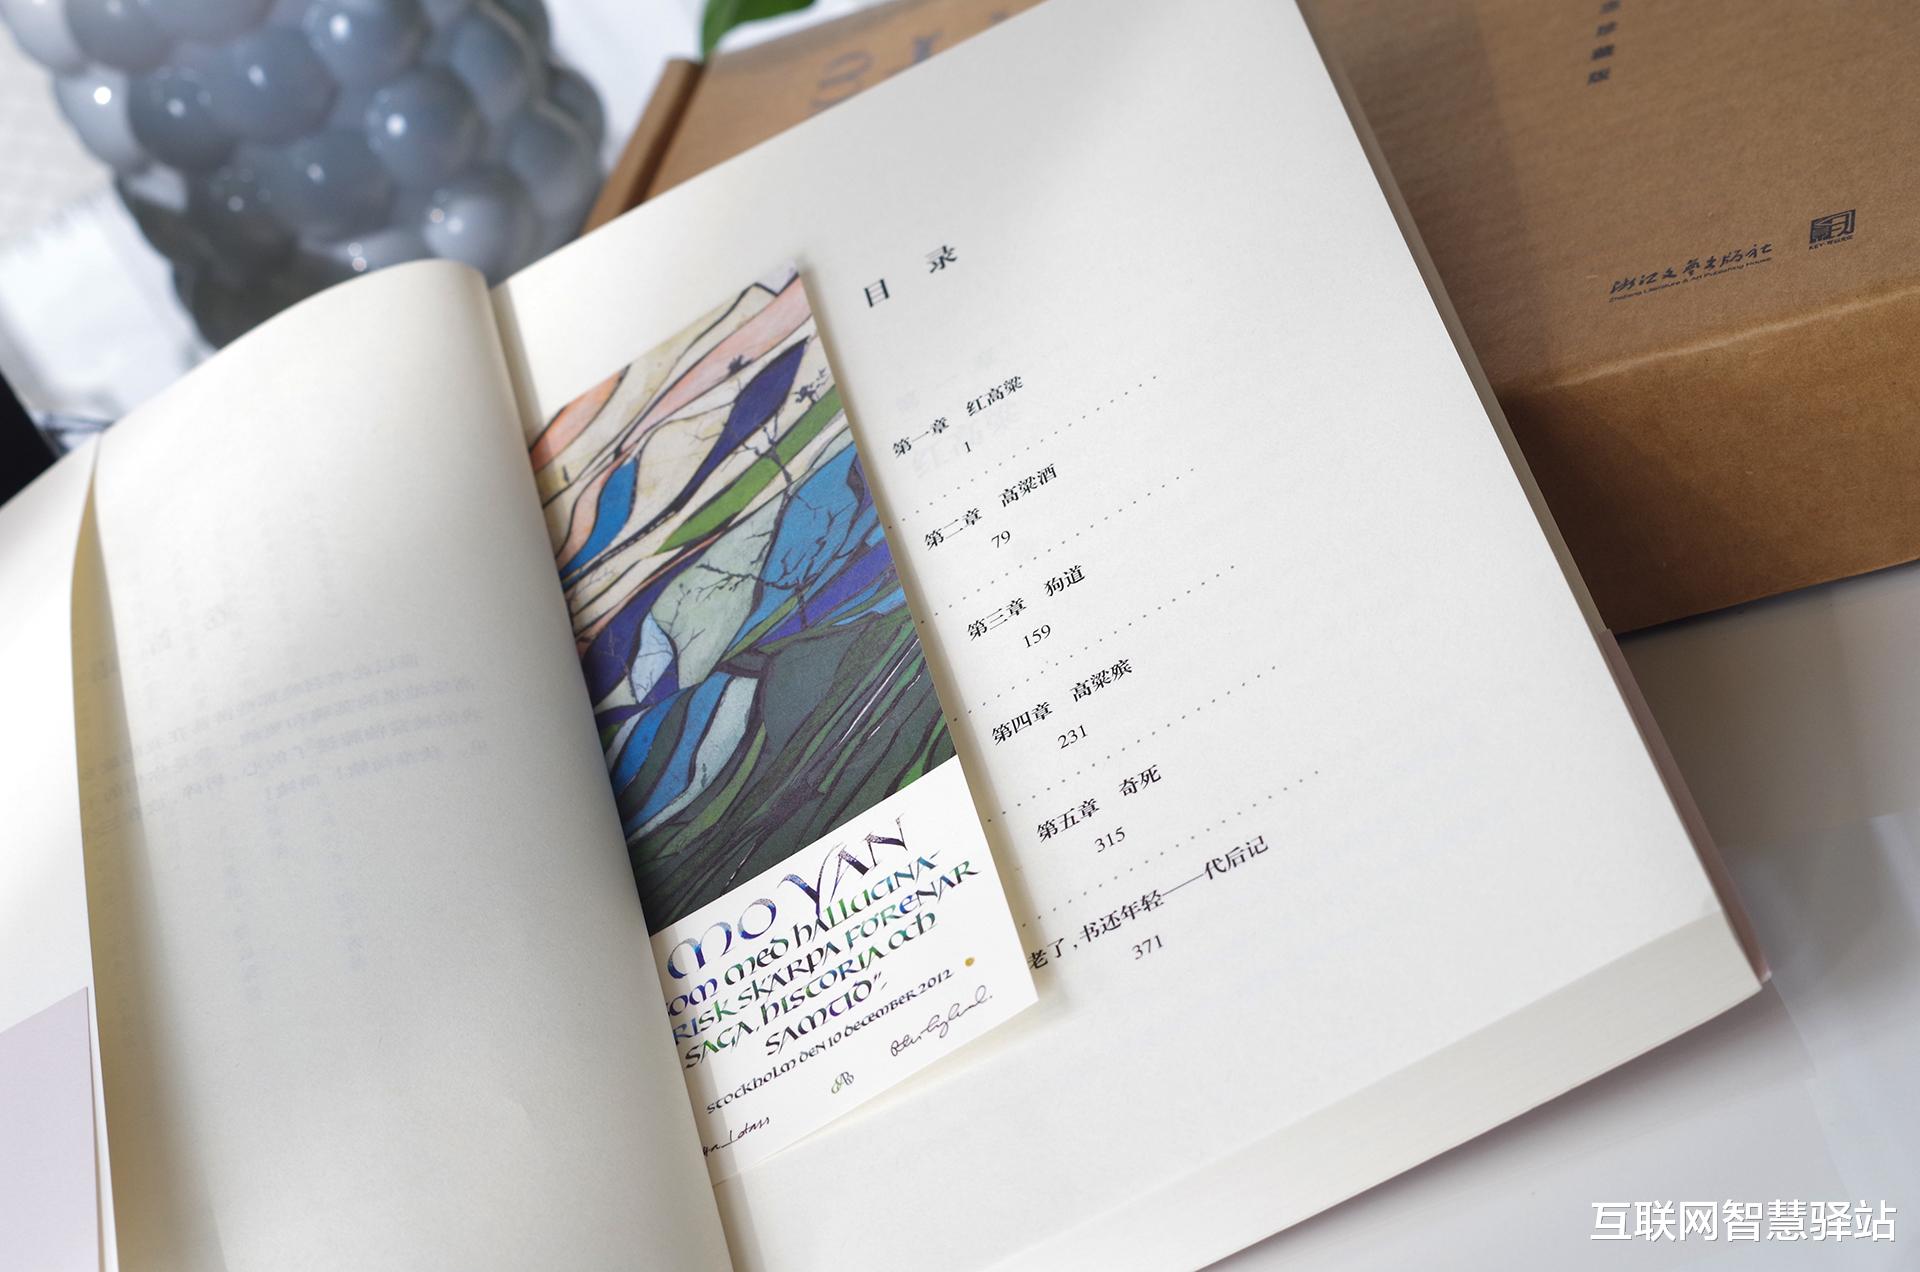 目 录
第一章 红高粱
1
第二章 高粱酒
79
第三章 狗道
159
第四章 高粱殡
231
第五章 奇死
315
老了，书还年轻——代后记
371
MO YAN
SOM MED HALLUCINA-
RISK SKÄRPA FÖRENAR
SAGA, HISTORIA OCH
SAMTID”
STOCKHOLM DEN 10 DECEMBER 2012
浙江文艺出版社
Zhejiang Literature & Art Publishing House
互联网智慧驿站